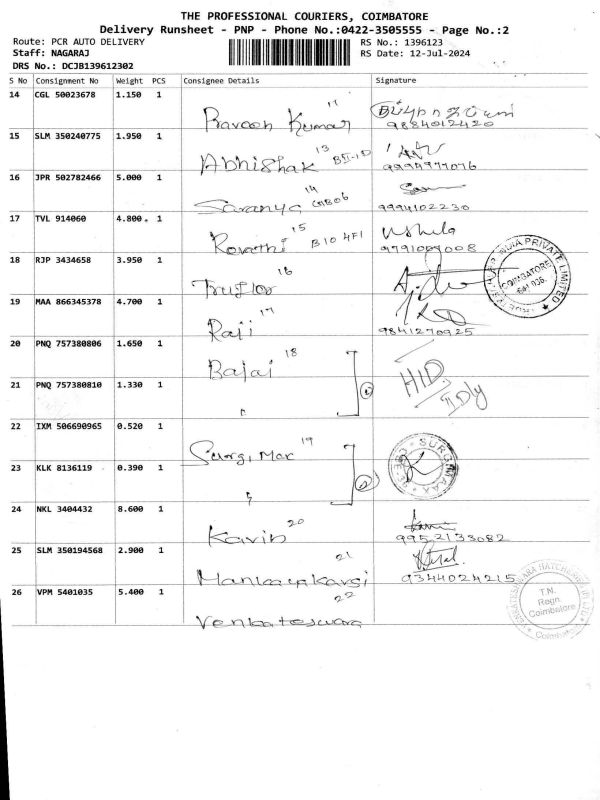 THE PROFESSIONAL COURIERS, COIMBATORE
Delivery Runsheet - PNP - Phone No.:0422-3505555 - Page No.:2
Route: PCR AUTO DELIVERY
RS No.: 1396123
Staff: NAGARAJ
RS Date: 12-Jul-2024
DRS No.: DCJB139612302
S No Consignment No Weight PCS Consignee Details Signature
14 CGL 50023678 1.150 1 Praveen Kumar 11
9884012420
15 SLM 350240775 1.950 1 Abhishak 13 BII-1D
9994977076
16 JPR 502782466 5.000 1 Saranya 14
9994102230
17 TVL 914060 4.800 1 Revathi 15 B10 4F1 Ushila
9791009008
18 RJP 3434658 3.950 1 16
INDIA PRIVATE LIMITED ★ COIMBATORE 641 036.
19 MAA 866345378 4.700 1 Raji 17
9841270925
20 PNQ 757380806 1.650 1 Bajai 18
HID
21 PNQ 757380810 1.330 1 IDly
22 IXM 506690965 0.520 1 Surgi Max 19
SURGIMAAX
23 KLK 8136119 0.390 1
24 NKL 3404432 8.600 1 Kavin 20 Kavin
9952133082
25 SLM 350194568 2.900 1 21
9344024215
26 VPM 5401035 5.400 1 Venkateswara 22
VENKATESWARA HATCHERIES T.N. Regn. Coimbatore